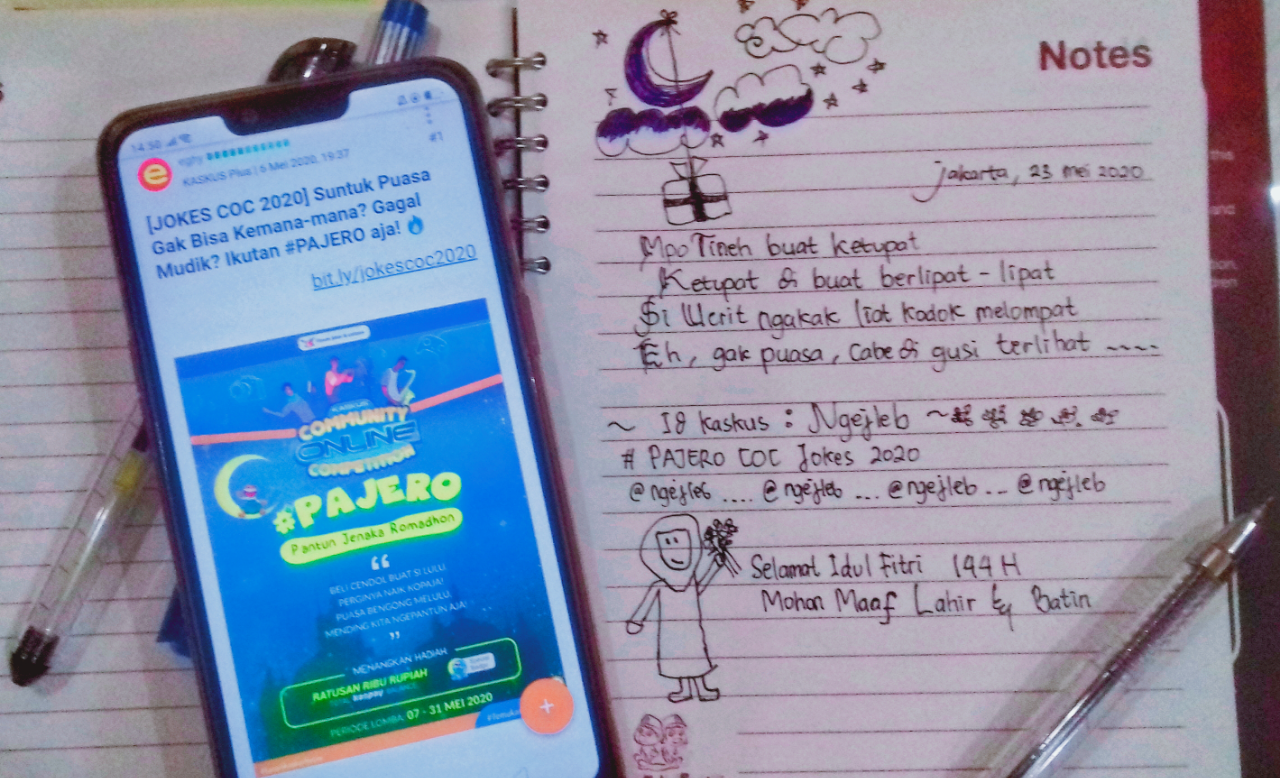 14:50
eghy
KASKUS Plus | 6 Mei 2020, 19:37
#1
[JOKES COC 2020] Suntuk Puasa
Gak Bisa Kemana-mana? Gagal
Mudik? Ikutan #PAJERO aja!
bit.ly/jokescoc2020
KASKUS
COMMUNITY
ONLINE
COMPETITION
#PAJERO
Pantun Jenaka Romadhon
“
BELI CENDOL BUAT SI LULU
PERGINYA NAIK KOPAJA!
PUASA BENGONG MELULU,
MENDING KITA NGEPANTUN AJA
”
MENANGKAN HADIAH
RATUSAN RIBU RUPIAH
PERIODE LOMBA: 07 - 31 MEI 2020
+
Notes
jakarta, 23 mei 2020
Mpo Tineh buat ketupat
Ketupat di buat berlipat - lipat
Si Ucrit ngakak liat kodok melompat
Eh, gak puasa, Cabe di gusi terlihat ~~~~
~ Id kaskus : Ngejleb ~
# PAJERO COC Jokes 2020
@ngejleb .... @ngejleb ... @ngejleb ... @ngejleb
Selamat Idul Fitri 144 H
Mohon Maaf Lahir & Batin